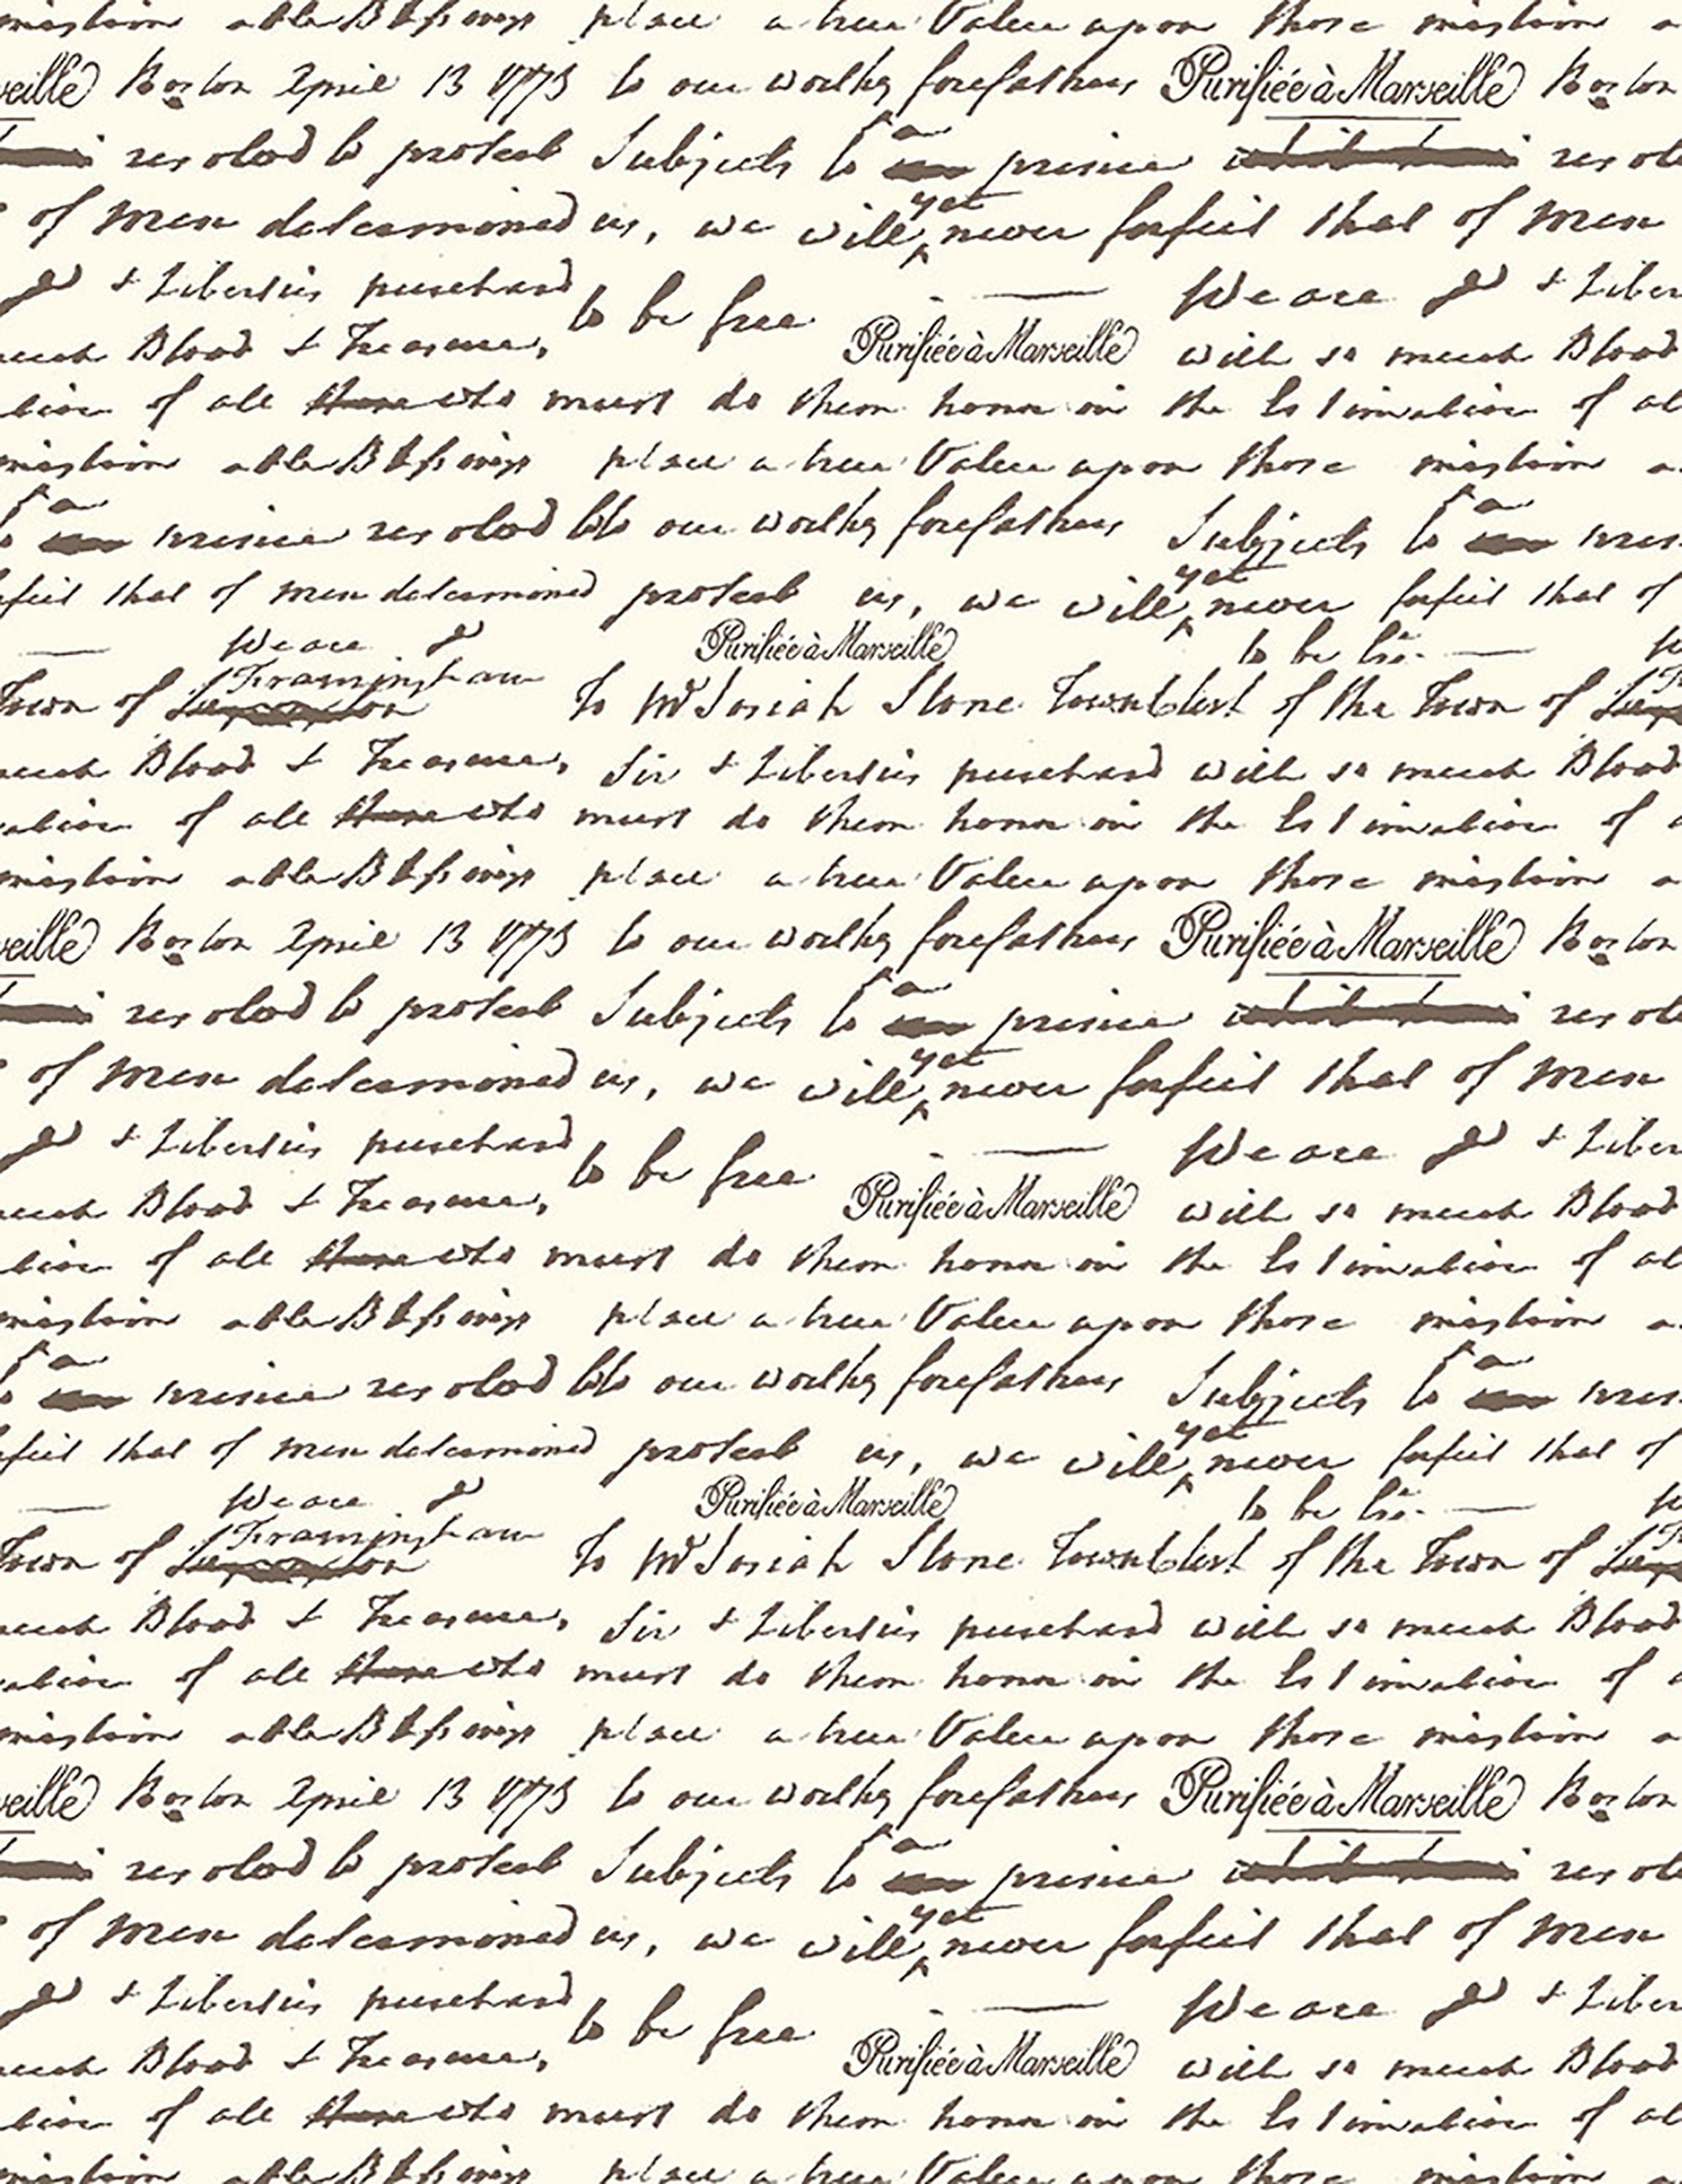 place a true Value upon those
Boston April 13 1773 to our worthy forefathers Purifiée à Marseille Boston
resolved to protect Subjects to a prince
of men determined us, we will yet never forfeit that of men
& Liberties purchasd to be free — We are & Liber
much Blood & Treasure, Purifiée à Marseille with so much Blood
of all those who must do them honor in the Estimation of al
place a true Value upon those
a prince resolved to our worthy forefathers Subjects to a
feit that of men determined protect us, we will yet never forfeit that of
— We are Purifiée à Marseille to be —
Town of Framingham To Mr Josiah Stone Town Clerk of the Town of
much Blood & Treasure, Sir & Liberties purchasd with so much Blood
of all those who must do them honor in the Estimation of
place a true Value upon those
eille Boston April 13 1773 to our worthy forefathers Purifiée à Marseille Boston
resolved to protect Subjects to a prince
of men determined us, we will yet never forfeit that of men
& Liberties purchasd to be free — We are & Liber
much Blood & Treasure, Purifiée à Marseille with so much Blood
of all those who must do them honor in the Estimation of al
place a true Value upon those
a prince resolved to our worthy forefathers Subjects to a
feit that of men determined protect us, we will yet never forfeit that of
— We are Purifiée à Marseille to be —
Town of Framingham To Mr Josiah Stone Town Clerk of the Town of
much Blood & Treasure, Sir & Liberties purchasd with so much Blood
of all those who must do them honor in the Estimation of
place a true Value upon those
eille Boston April 13 1773 to our worthy forefathers Purifiée à Marseille Boston
resolved to protect Subjects to a prince
of men determined us, we will yet never forfeit that of men
& Liberties purchasd to be free — We are & Liber
much Blood & Treasure, Purifiée à Marseille with so much Blood
of all those who must do them honor in the Estimation of al
place a true Value upon those